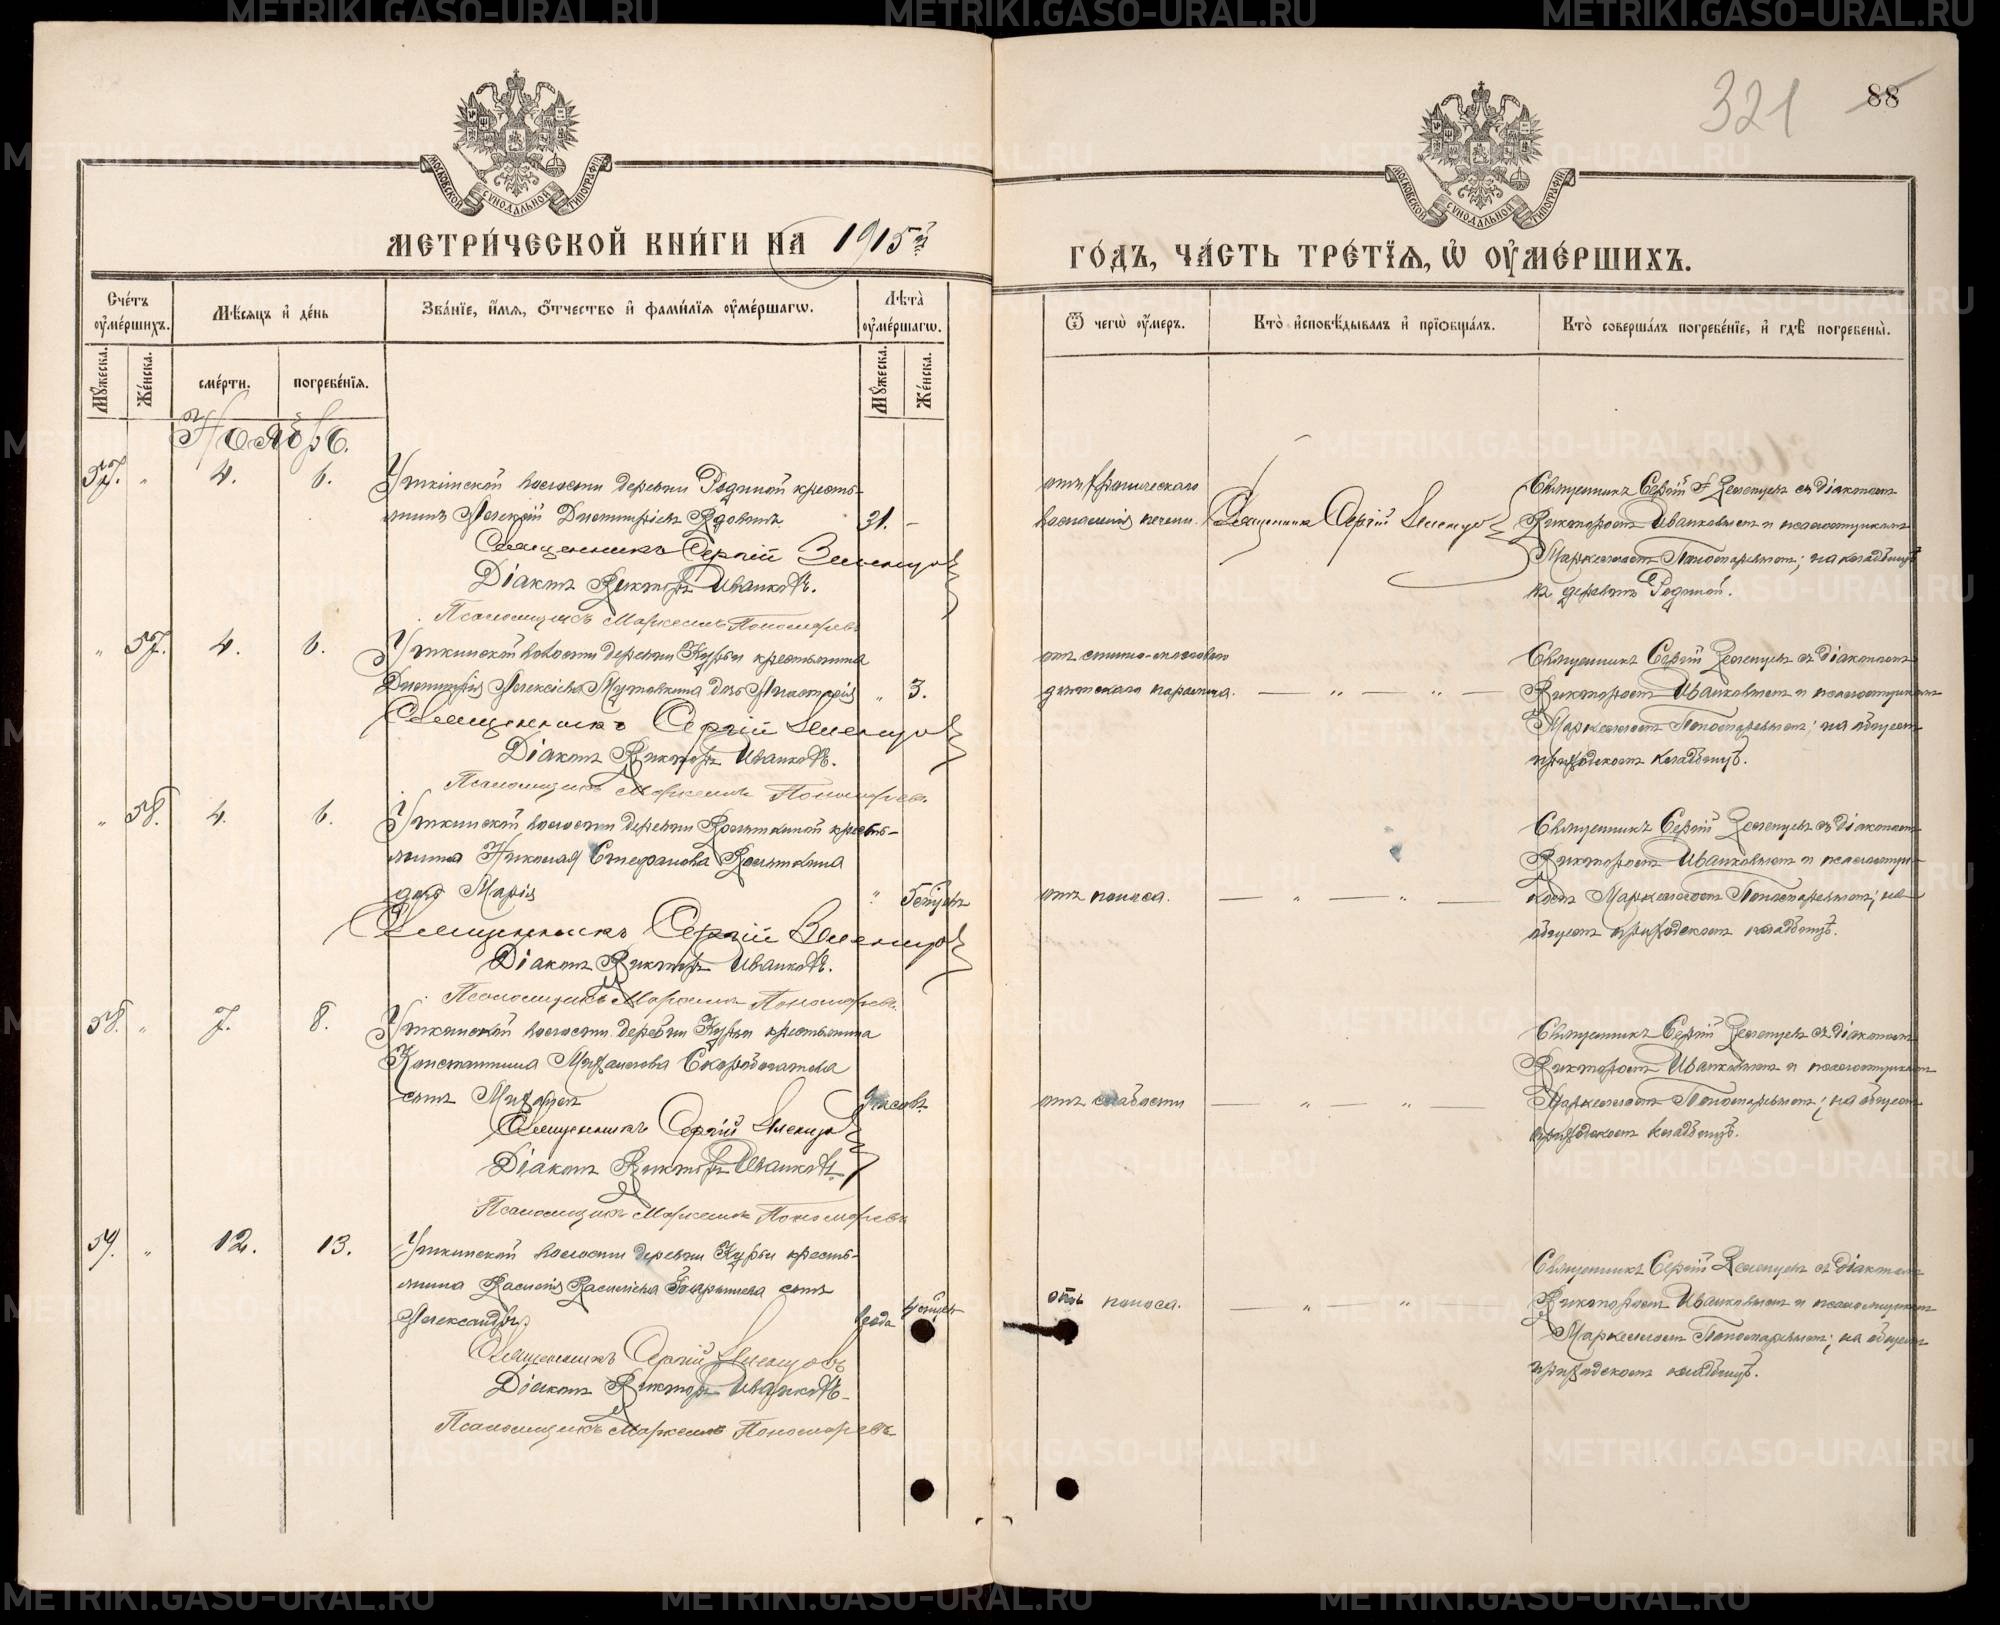 321
88
МОСКОВСКОЙ СѴНОДАЛЬНОЙ ТИПОГРАФІИ
МОСКОВСКОЙ СѴНОДАЛЬНОЙ ТИПОГРАФІИ
МЕТРИ́ЧЕСКОЙ КНИ́ГИ НА 1915й
ГО́ДЪ, ЧА́СТЬ ТРЕ́ТІЯ, Ѡ ОУ҆МЕ́РШИХЪ.
Сче́тъ оу҆ме́ршихъ.
Мѣ́сяцъ и҆ де́нь
Зва́нїе, и҆́мя, ѻ҆́тчество и҆ фами́лїя оу҆ме́ршагѡ.
Лѣта̀ оу҆ме́ршагѡ.
Ѿ чегѡ̀ оу҆́меръ.
Кто̀ и҆сповѣ́дывалъ и҆ прїѡбща́лъ.
Кто̀ соверша́лъ погребе́нїе, и҆ гдѣ̀ погребены̀.
Мꙋ́жеска.
Же́нска.
сме́рти.
погребе́нїя.
Мꙋ́жеска.
Же́нска.
Ноябрь.
57. " 4. 6. Уткинской волости деревни Родиной кресть-
янинъ Алексѣй Димитріевъ Вдовинъ 31. –
Священникъ Сергій Зеленцовъ
Діаконъ Викторъ Иванковъ.
Псаломщикъ Маркеллъ Пономаревъ
отъ хроническаго
воспаленія печени. Священникъ Сергій Зеленцовъ
Священникъ Сергій Зеленцовъ съ діакономъ
Викторомъ Иванковымъ и псаломщикомъ
Маркелломъ Пономаревымъ; на кладбищѣ
въ деревнѣ Родиной.
" 57. 4. 6. Уткинской волости деревни Курьи крестьянина
Димитрія Алексѣева Мутовкина дочь Анастасія " 3.
Священникъ Сергій Зеленцовъ
Діаконъ Викторъ Иванковъ.
Псаломщикъ Маркеллъ Пономаревъ.
отъ спинно-мозгового
дѣтскаго паралича. — " — " —
Священникъ Сергій Зеленцовъ съ діакономъ
Викторомъ Иванковымъ и псаломщикомъ
Маркелломъ Пономаревымъ; на общемъ
приходскомъ кладбищѣ.
" 58. 4. 6. Уткинской волости деревни кресть-
янина Николая Стефанова
дочь Марія " 5 мѣсяц.
Священникъ Сергій Зеленцовъ
Діаконъ Викторъ Иванковъ.
Псаломщикъ Маркеллъ Пономаревъ.
отъ поноса. — " — " —
Священникъ Сергій Зеленцовъ съ діакономъ
Викторомъ Иванковымъ и псаломщи-
комъ Маркелломъ Пономаревымъ; на
общемъ приходскомъ кладбищѣ.
58. " 7. 8. Уткинской волости деревни Курьи крестьянина
Константина Михайлова Скоробогатова
сынъ Михаилъ часовъ
Священникъ Сергій Зеленцовъ
Діаконъ Викторъ Иванковъ
Псаломщикъ Маркеллъ Пономаревъ
отъ слабости — " — " —
Священникъ Сергій Зеленцовъ съ діакономъ
Викторомъ Иванковымъ и псаломщикомъ
Маркелломъ Пономаревымъ; на общемъ
приходскомъ кладбищѣ.
59. " 12. 13. Уткинской волости деревни Курьи кресть-
янина Василія Васильева сынъ
Александръ года
Священникъ Сергій Зеленцовъ
Діаконъ Викторъ Иванковъ.
Псаломщикъ Маркеллъ Пономаревъ
отъ поноса. — " — " —
Священникъ Сергій Зеленцовъ съ діакономъ
Викторомъ Иванковымъ и псаломщикомъ
Маркелломъ Пономаревымъ; на общемъ
приходскомъ кладбищѣ.
METRIKI.GASO-URAL.RU